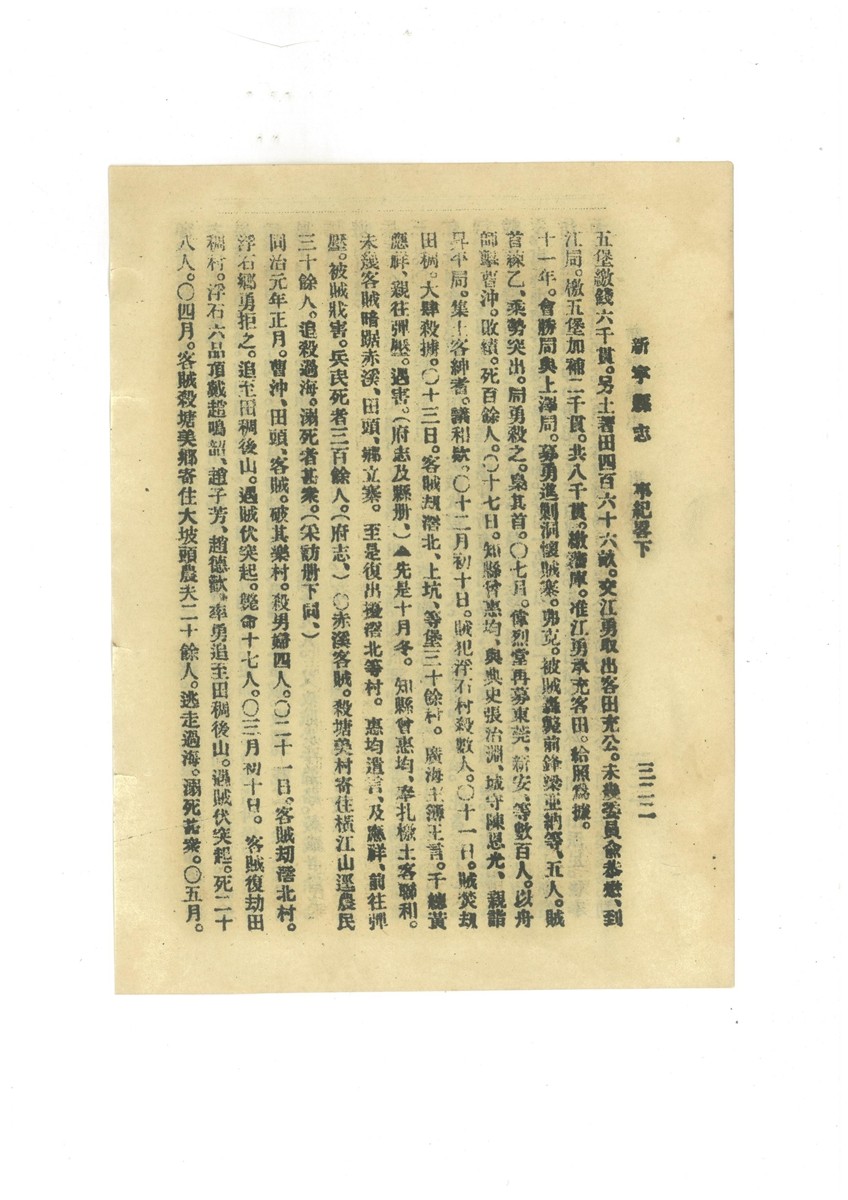 新寧縣志　事紀畧下　三二二
五堡繳錢六千貫。另土著田四百六十六畝。交江勇取出客田充公。未幾委員俞恭懋、到
江局。繳五堡加補二千貫。共八千貫。繳藩庫。准江勇承充客田。給照爲據。
十一年。會勝局與上澤局。募勇進剿洞懷賊寨。弗克。被賊轟斃前鋒梁亞納等、五人。賊
首練乙、乘勢突出。局勇殺之。梟其首。〇七月。偉烈堂再募東莞、新安、等數百人。以舟
師擊曹沖。敗績。死百餘人。〇十七日。知縣曾惠均、與典史張治淵、城守陳恩光、親詣
昇平局。集土客紳耆。議和欵。〇十二月初十日。賊犯浮石村殺數人。〇十一日。賊焚刼
田稠。大肆殺擄。〇十三日。客賊刼潛北、上坑、等堡三十餘村。廣海主簿王言。千總黃
應祥、親往彈壓。遇害。（府志及縣册、）▲先是十月冬。知縣曾惠均、奉札檄土客聯和。
未幾客賊暗踞赤溪、田頭、鄉立寨。至是復出擾潛北等村。惠均遣言、及應祥、前往彈
壓。被賊戕害。兵民死者三百餘人。（府志、）〇赤溪客賊。殺塘美村寄住橫江山逕農民
三十餘人。追殺過海。溺死者甚衆。（采訪册下同、）
同治元年正月。曹沖、田頭、客賊。破其樂村。殺男婦四人。〇二十一日。客賊刼潛北村。
浮石鄉勇拒之。追至田稠後山。遇賊伏突起。斃命十七人。〇三月初十日。客賊復刼田
稠村。浮石六品頂戴趙鳴韶、趙子芳、趙德歡。率勇追至田稠後山。遇賊伏突起。死二十
八人。〇四月。客賊殺塘美鄉寄住大坡頭農夫二十餘人。逃走過海。溺死甚衆。〇五月。